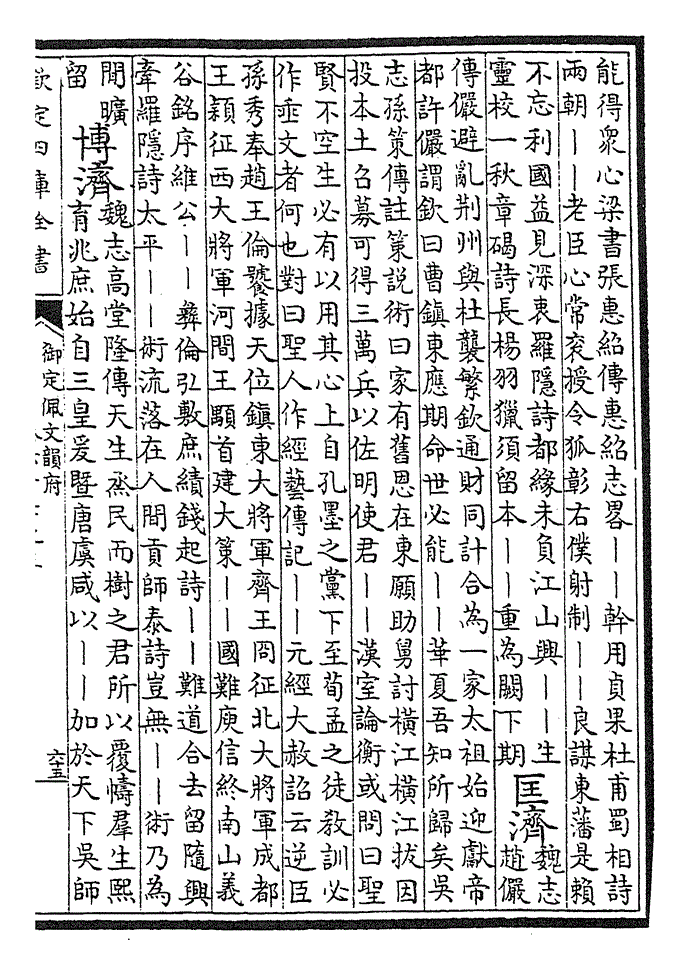 能得衆心梁書張惠紹傳惠紹志畧——幹用貞果杜甫蜀相詩
兩朝——老臣心常衮授令狐彰右僕射制——良謀東藩是賴
不忘利國益見深衷羅隱詩都緣未負江山興——生
靈校一秋章碣詩長楊羽獵須留本——重為闕下期
匡濟
魏志
趙儼
傳儼避亂荆州與杜襲繁欽通財同計合為一家太祖始迎獻帝
都許儼謂欽曰曹鎮東應期命世必能——華夏吾知所歸矣吳
志孫策傳註策説術曰家有舊恩在東願助舅討橫江橫江拔因
投本土召募可得三萬兵以佐明使君——漢室論衡或問曰聖
賢不空生必有以用其心上自孔墨之黨下至荀孟之徒教訓必
作垂文者何也對曰聖人作經藝傳記——元經大赦詔云逆臣
孫秀奉趙王倫饕據天位鎮東大將軍齊王冏征北大將軍成都
王穎征西大將軍河間王顒首建大策——國難庾信終南山義
谷銘序維公——彝倫弘敷庶績錢起詩——難道合去留隨興
牽羅隱詩太平———術流落在人間貢師泰詩豈無——術乃為
閒曠
留
博濟
魏志高堂隆傳天生烝民而樹之君所以覆幬羣生熙
育兆庶始自三皇爰暨唐虞咸以——加於天下吳師
欽定四庫全書
御定佩文韻府
六十五